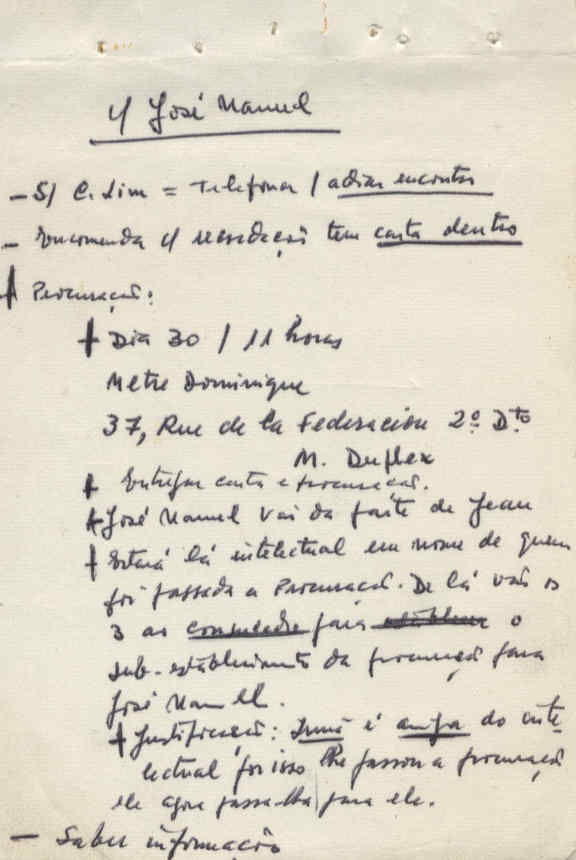 c/ José Manuel
- S/ C. Lim = Telefonar / adiar encontro
- Encomenda c/ recordações tem carta dentro
+ Procuração:
+ Dia 30 / 11 horas
Metre Dominique
37, Rue de la Federacion 2º Dto
M. Duplex
+ Entregar carta e procuração.
+ José Manuel vai da parte de Jean
+ Estará lá intelectual em nome de quem
foi passada a Procuração. De lá vão os
3 ao consulado para o
sub-estabelecimento da procuração para
José Manuel.
+ Justificação: Irmã é amiga do inte-
lectual por isso lhe passou a procuração
ele agora passa-lha para ele.
- Saber informação